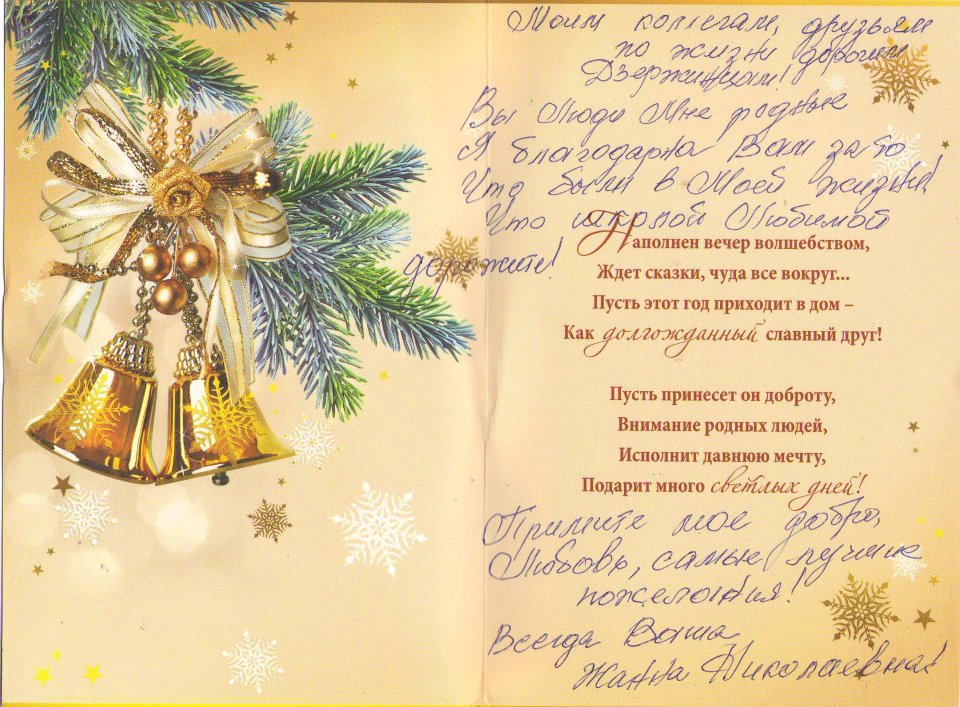 Моим коллегам, друзьям
по жизни дорогим
Дзержинцам!
Вы Люди Мне родные
Я благодарна Вам за то
Что были в Моей жизни!
Что школой Любимой
дорожите!
Наполнен вечер волшебством,
Ждет сказки, чуда все вокруг...
Пусть этот год приходит в дом –
Как долгожданный славный друг!
Пусть принесет он доброту,
Внимание родных людей,
Исполнит давнюю мечту,
Подарит много светлых дней!
Примите мое добро,
Любовь, самые лучшие
пожелания!
Всегда Ваша
Жанна Николаевна!